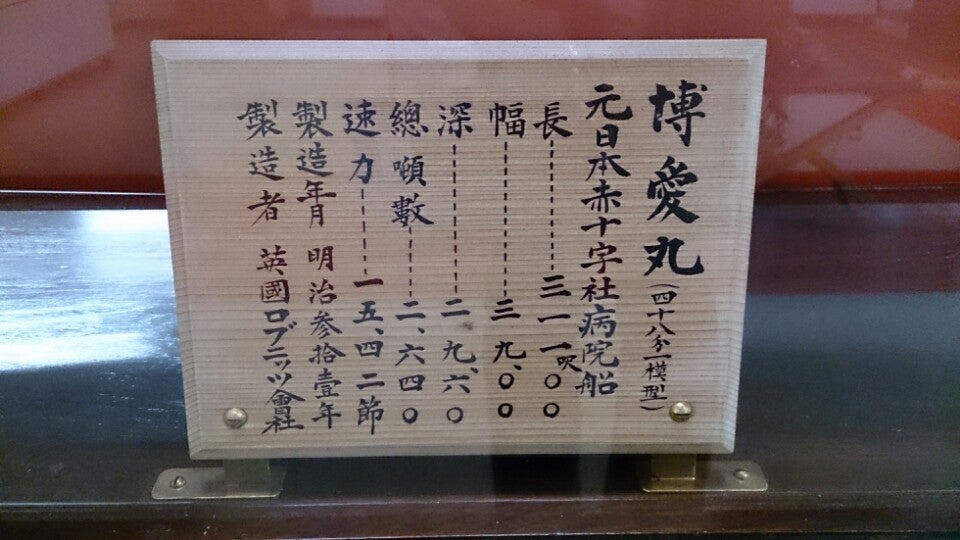 博愛丸(四十八分一模型)
元日本赤十字社病院船
長 三一一呎、〇〇
幅 三九、〇〇
深 二九、六〇
總噸數 二、六四〇
速力 一五、四二節
製造年月 明治參拾壹年
製造者 英國ロブニッツ會社